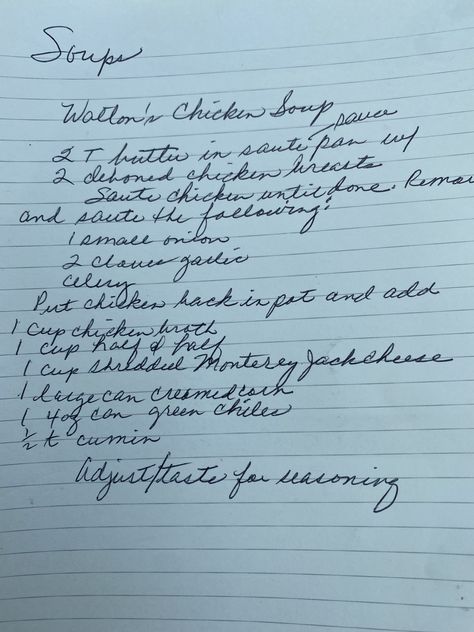 Soups
Walton's Chicken Soup
2 T butter in saute pan w/
sauce
2 deboned chicken breasts
Saute chicken until done. Remo
and saute the following:
1 small onion
2 cloves garlic
celery
Put chicken back in pot and add
1 cup chicken broth
1 cup half & half
1 cup shredded Monterey Jack cheese
1 large can creamed corn
1 4oz can green chiles
1/2 t cumin
Adjust/taste for seasoning